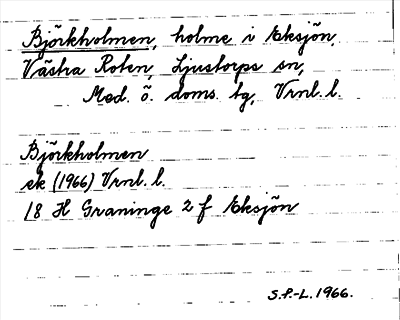 Björkholmen, holme i Eksjön,
Västra Roten, Ljustorps sn,
Med. ö. doms. tg, Vrnl. l.
Björkholmen
ek (1966) Vrnl. l.
18 H Graninge 2 f Eksjön
S.P.-L. 1966.